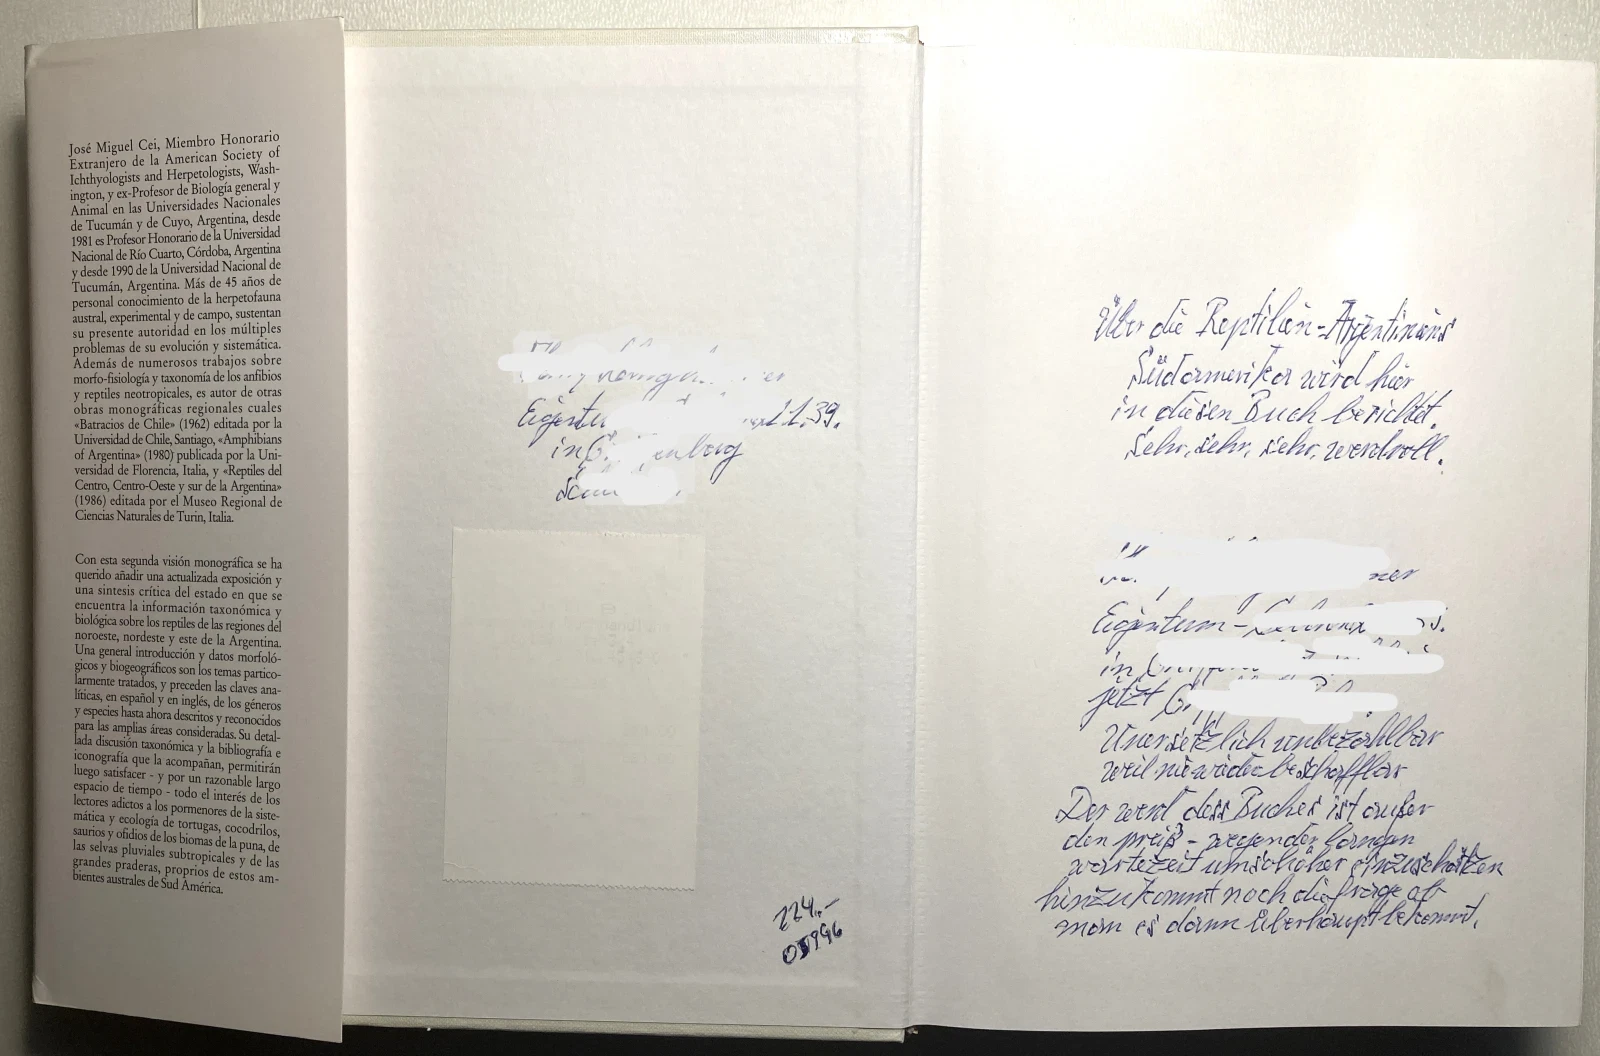 José Miguel Cei, Miembro Honorario
Extranjero de la American Society of
Ichthyologists and Herpetologists, Wash-
ington, y ex-Profesor de Biología general y
Animal en las Universidades Nacionales
de Tucumán y de Cuyo, Argentina, desde
1981 es Profesor Honorario de la Universidad
Nacional de Río Cuarto, Córdoba, Argentina
y desde 1990 de la Universidad Nacional de
Tucumán, Argentina. Más de 45 años de
personal conocimiento de la herpetofauna
austral, experimental y de campo, sustentan
su presente autoridad en los múltiples
problemas de su evolución y sistemática.
Además de numerosos trabajos sobre
morfo-fisiología y taxonomía de los anfibios
y reptiles neotropicales, es autor de otras
obras monográficas regionales cuales
«Batracios de Chile» (1962) editada por la
Universidad de Chile, Santiago, «Amphibians
of Argentina» (1980) publicada por la Uni-
versidad de Florencia, Italia, y «Reptiles del
Centro, Centro-Oeste y sur de la Argentina»
(1986) editada por el Museo Regional de
Ciencias Naturales de Turin, Italia.
Con esta segunda visión monográfica se ha
querido añadir una actualizada exposición y
una sintesis crítica del estado en que se
encuentra la información taxonómica y
biológica sobre los reptiles de las regiones del
noroeste, nordeste y este de la Argentina.
Una general introducción y datos morfoló-
gicos y biogeográficos son los temas particu-
larmente tratados, y preceden las claves ana-
líticas, en español y en inglés, de los géneros
y especies hasta ahora descritos y reconocidos
para las amplias áreas consideradas. Su detal-
lada discusión taxonómica y la bibliografía e
iconografía que la acompañan, permitirán
luego satisfacer - y por un razonable largo
espacio de tiempo - todo el interés de los
lectores adictos a los pormenores de la siste-
mática y ecología de tortugas, cocodrilos,
saurios y ofidios de los biomas de la puna, de
las selvas pluviales subtropicales y de las
grandes praderas, proprios de estos am-
bientes australes de Sud América.
1.39.
in
224.-
Über die Reptilien-Argentiniens
Südamerikas wird hier
in diesen Buch berichtet.
Sehr, sehr, sehr, wertvoll.
Eigentum-
in
jetzt
Unersetzlich unbezahlbar
weil nie wieder beschaffbar
Der wert des Buches ist außer
den preiß - wegen der langen
wartezeit umso höher einzuschätzen
hinzu kommt noch die frage ob
man es dann überhaupt bekommt.